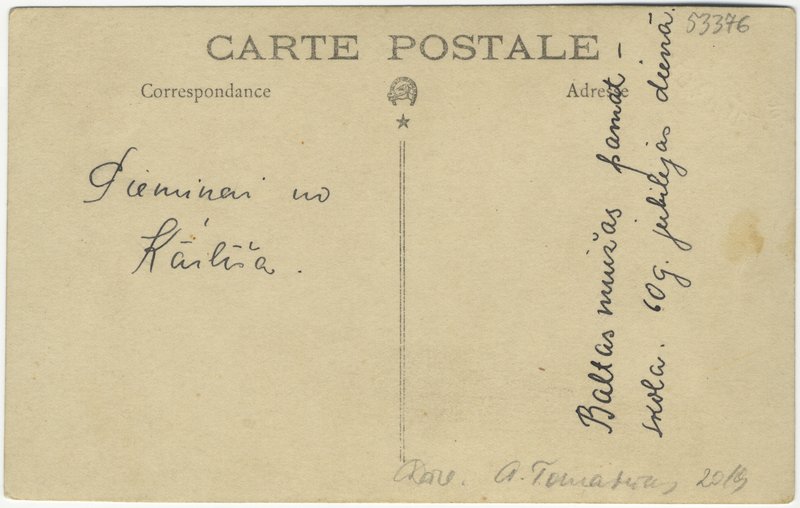 53376
CARTE POSTALE
Correspondance
Adresse
Pieminai no
Kārliša.
Baltas muižas pamat-
skola. 60g. jubilejas dienā.
Dāv. A. 2019